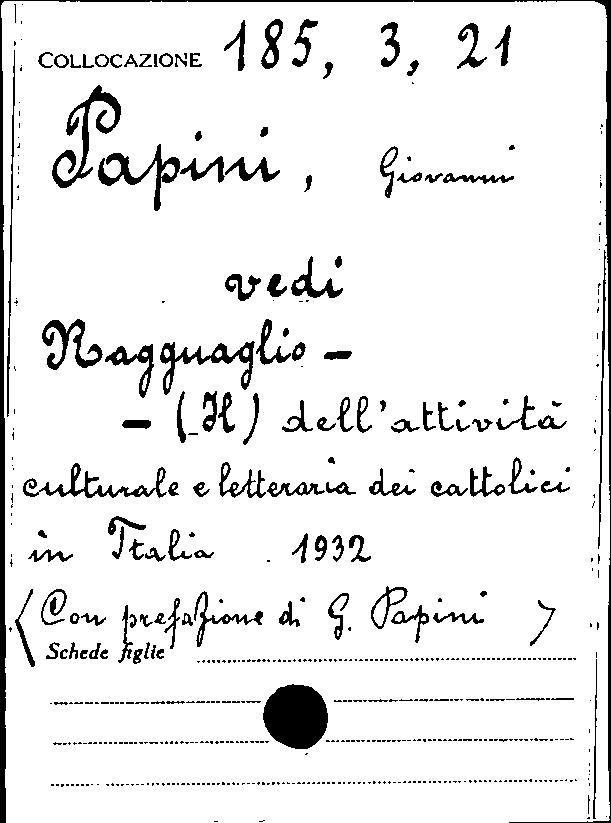 COLLOCAZIONE 185, 3, 21
Papini, Giovanni
vedi
Ragguaglio -
- (Il) dell'attività
culturale e letteraria dei cattolici
in Italia . 1932
<Con prefazione di G. Papini>
Schede figlie